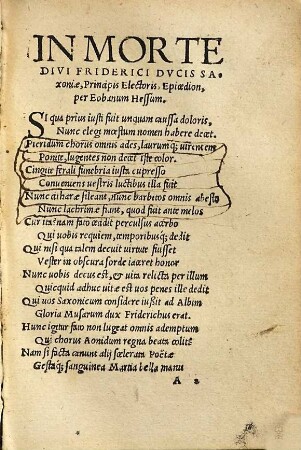 IN MORTE
DIVI FRIDERICI DVCIS SA-
xoniæ, Principis Electoris, Epicedion,
per Eobanum Hessum.
Si qua prius iusti fuit unquam caussa doloris,
Nunc elegi mœstum nomen habere decet.
Pieridum chorus omnis ades, laurumq; uirentem
Ponite, lugentes non decet iste color.
Cingite ferali funebria iusta cupresso
Conueniens uestris luctibus illa fuit
Nunc citharæ sileant, nunc barbitos omnis abesto
Nunc lachrimæ fiant, quod fuit ante melos
Cur
nam fato occidit perculsus acerbo
Qui uobis requiem, temporibusq; dedit
Qui nisi qua talen decuit uirtute fuisset
Vester in obscura sorde iaceret honor
Nunc uobis decus est, & uita relicta per illum
Quicquid adhuc uitæ est uos penes ille dedit
Qui uos Saxonicum considere iussit ad Albim
Gloria Musarum dux Friderichus erat.
Hunc igitur fato non lugeat omnis ademptum
Qui chorus Aonidum regna beata colit
Nam si facta canunt alij scelerata Poëtæ
Gestaq; sanguinea Martia bella manu
A 2